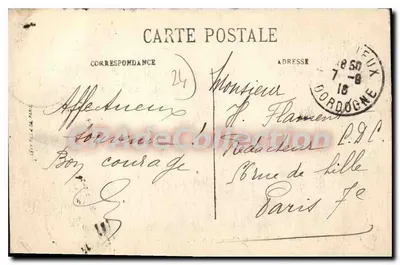 CARTE POSTALE
CORRESPONDANCE
ADRESSE
24
18 50
7-8
15
DORDOGNE
Affectueux
souvenir !
Bon courage
Monsieur
H. Flament
Rédacteur C.D.C.
56 rue de Lille
Paris 7e